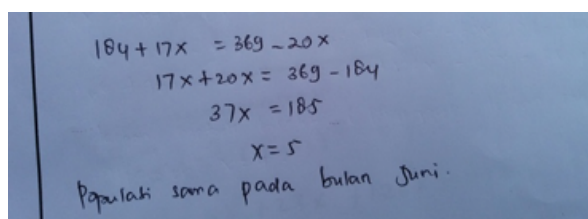 184 + 17x = 369 - 20x
17x + 20x = 369 - 184
37x = 185
x = 5
Populasi sama pada bulan Juni.